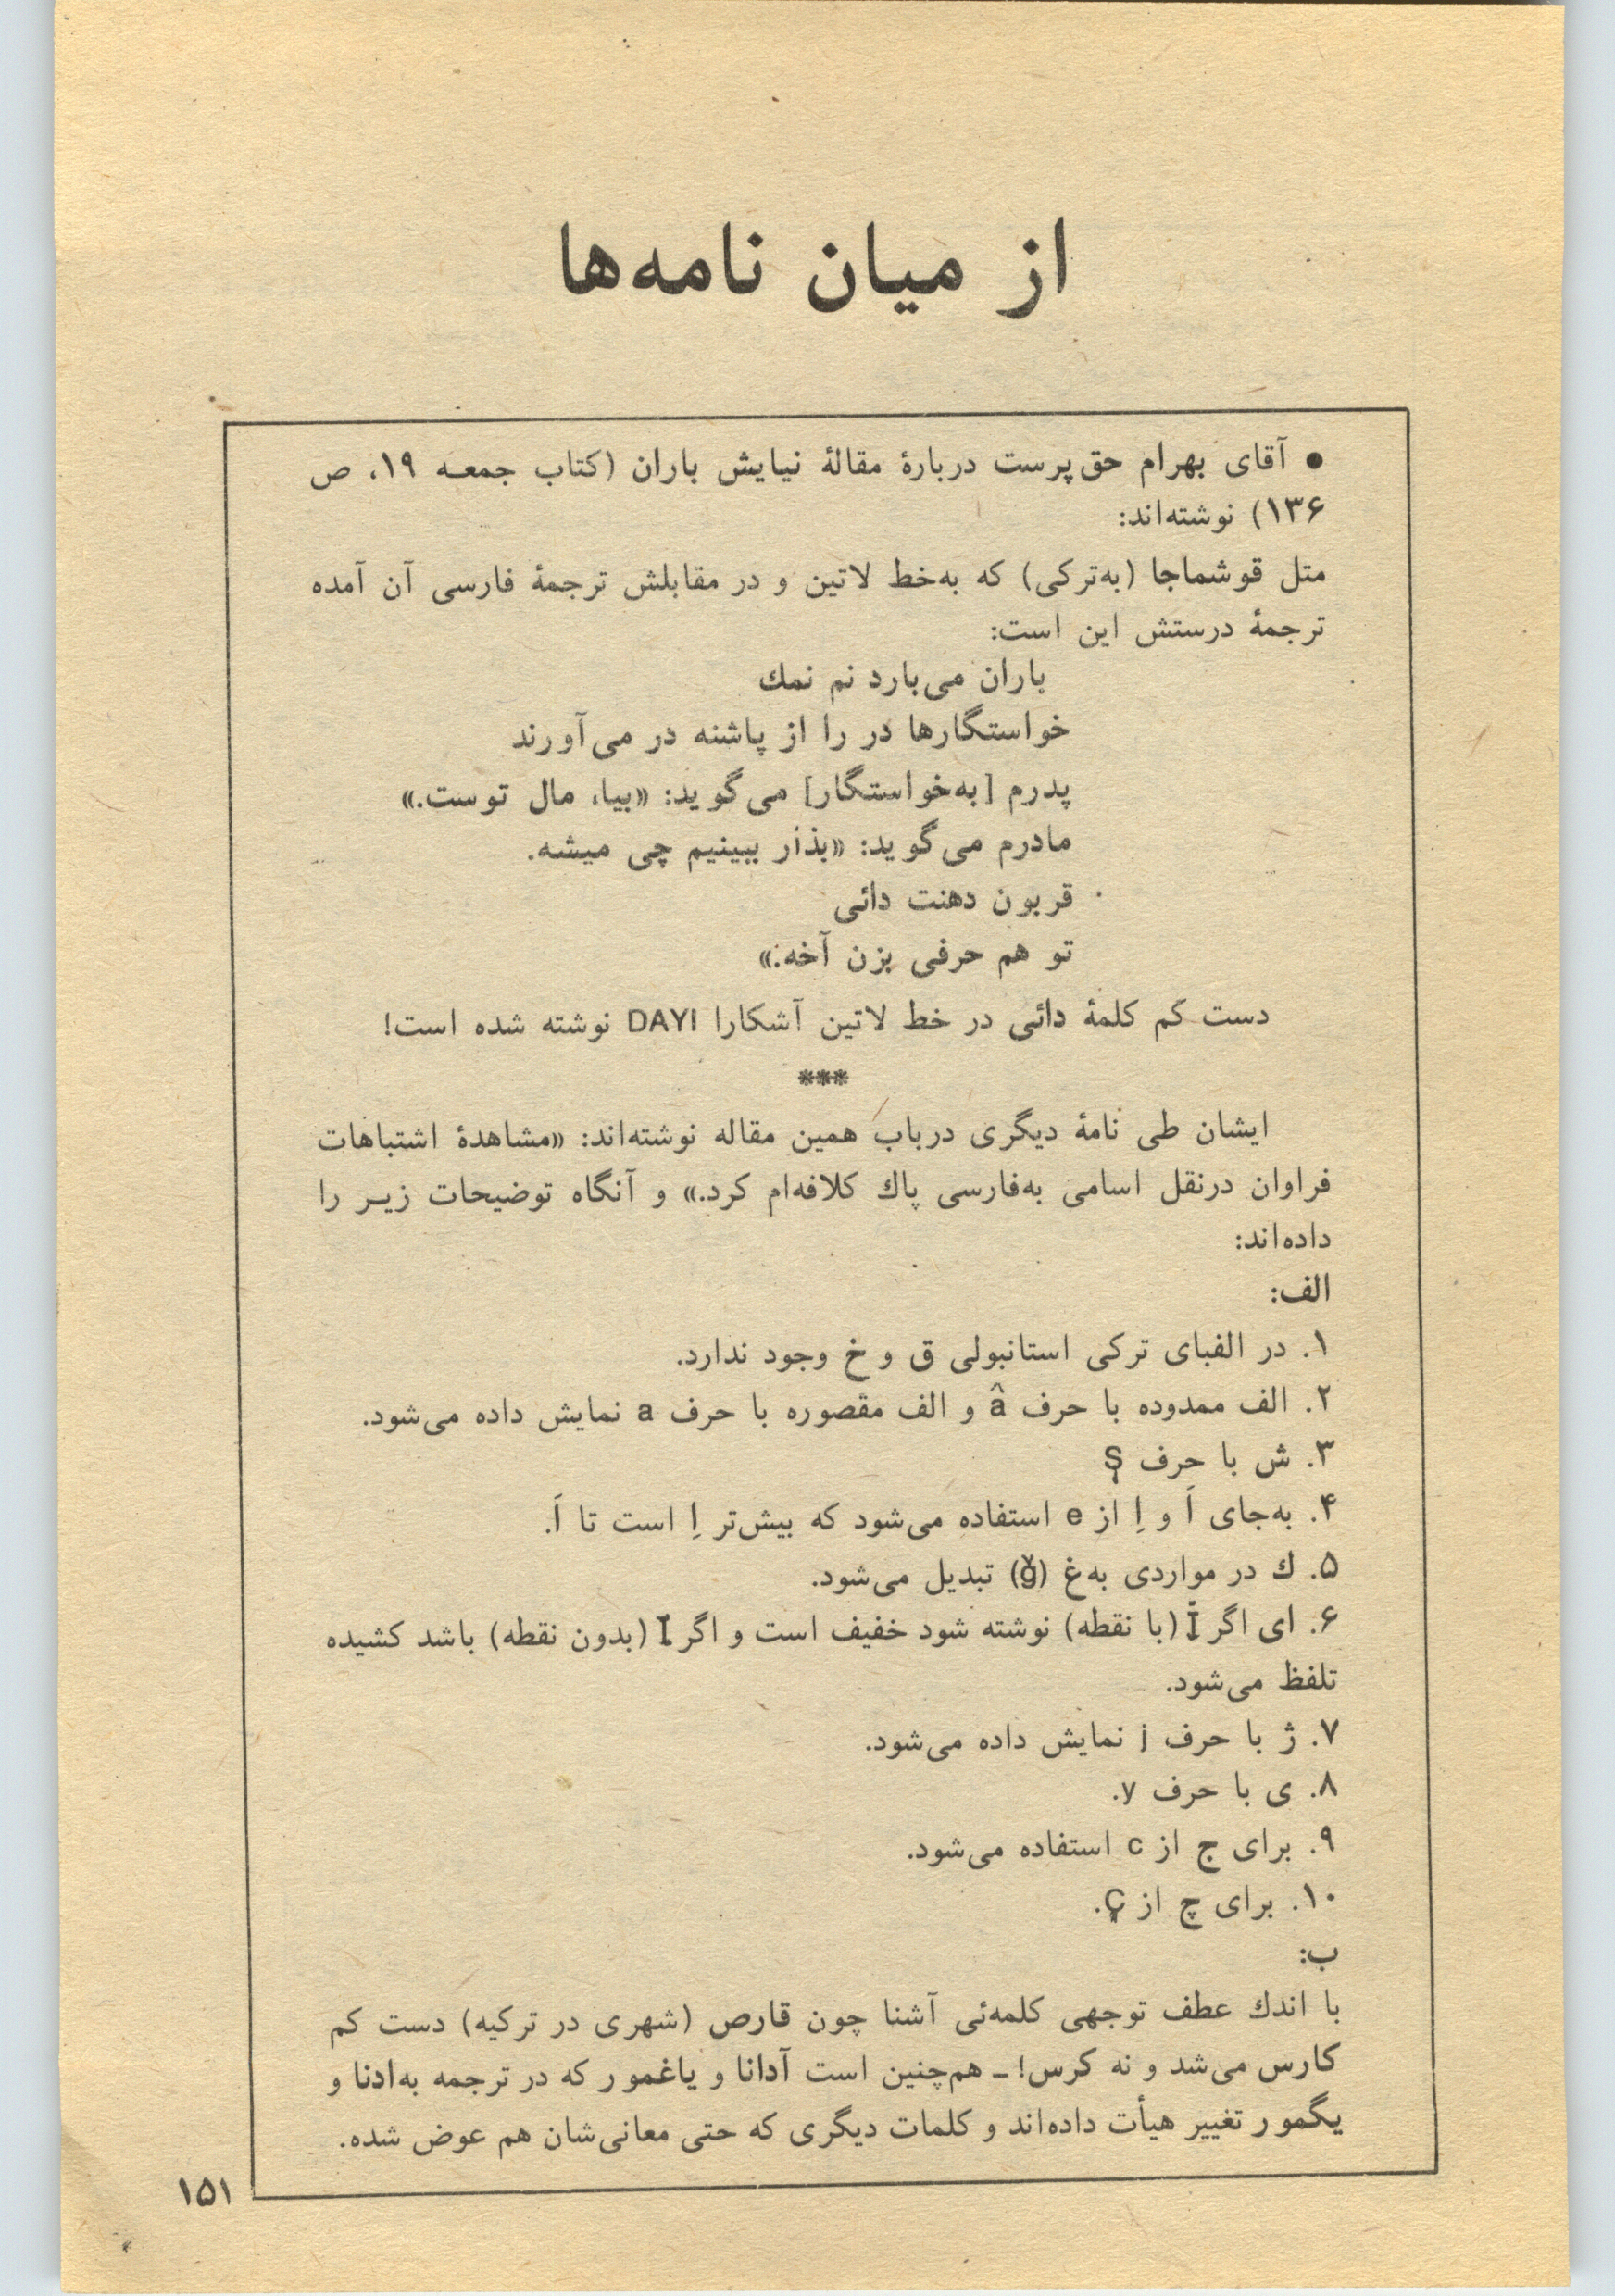 از میان نامه‌ها
● آقای بهرام حق‌پرست دربارهٔ مقالهٔ نیایش باران (کتاب جمعـه ۱۹، ص
۱۳۶) نوشته‌اند:
متل قوشماجا (به‌ترکی) که به‌خط لاتین و در مقابلش ترجمهٔ فارسی آن آمده
ترجمهٔ درستش این است:
باران می‌بارد نم نمك
خواستگارها در را از پاشنه در می‌آورند
پدرم [به‌خواستگار] می‌گوید: «بیا، مال توست.»
مادرم می‌گوید: «بذار ببینیم چی میشه.
قربون دهنت دائی
تو هم حرفی بزن آخه.»
دست کم کلمهٔ دائی در خط لاتین آشکارا DAYI نوشته شده است!
***
ایشان طی نامهٔ دیگری درباب همین مقاله نوشته‌اند: «مشاهدهٔ اشتباهات
فراوان درنقل اسامی به‌فارسی پاك کلافه‌ام کرد.» و آنگاه توضیحات زیـر را
داده‌اند:
الف:
۱. در الفبای ترکی استانبولی ق و خ وجود ندارد.
۲. الف ممدوده با حرف â و الف مقصوره با حرف a نمایش داده می‌شود.
۳. ش با حرف Ş
۴. به‌جای اَ و اِ از e استفاده می‌شود که بیش‌تر اِ است تا اَ.
۵. ك در مواردی به‌غ (ğ) تبدیل می‌شود.
۶. ای اگر İ (با نقطه) نوشته شود خفیف است و اگر I (بدون نقطه) باشد کشیده
تلفظ می‌شود.
۷. ژ با حرف j نمایش داده می‌شود.
۸. ی با حرف y.
۹. برای ج از c استفاده می‌شود.
۱۰. برای چ از Ç.
ب:
با اندك عطف توجهی کلمه‌ئی آشنا چون قارص (شهری در ترکیه) دست کم
کارس می‌شد و نه کرس! ـ هم‌چنین است آدانا و یاغمور که در ترجمه به‌ادنا و
یگمور تغییر هیأت داده‌اند و کلمات دیگری که حتی معانی‌شان هم عوض شده.
۱۵۱